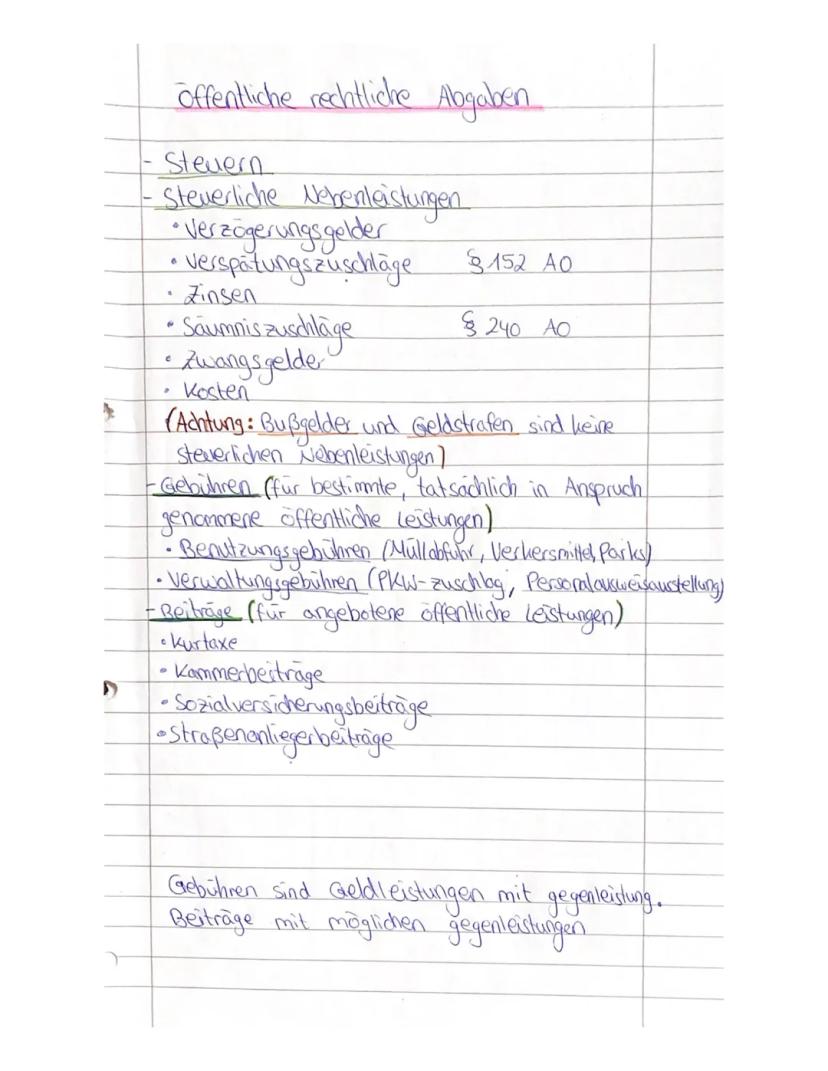 öffentliche rechtliche Abgaben
- Steuern
- Steuerliche Nebenleistungen
• Verzögerungsgelder
• Verspätungszuschläge § 152 AO
• Zinsen
• Säumniszuschläge § 240 AO
• Zwangsgelder
• Kosten
(Achtung: Bußgelder und Geldstrafen sind keine
steuerlichen Nebenleistungen)
- Gebühren (für bestimmte, tatsächlich in Anspruch
genommene öffentliche Leistungen)
• Benutzungsgebühren (Müllabfuhr, Verkersmittel, Parks)
• Verwaltungsgebühren (PKW-zuschlag, Personalausweisausstellung)
- Beiträge (für angebotene öffentliche Leistungen)
• Kurtaxe
• Kammerbeiträge
• Sozialversicherungsbeiträge
• Straßenanliegerbeiträge
Gebühren sind Geldleistungen mit gegenleistung.
Beiträge mit möglichen gegenleistungen